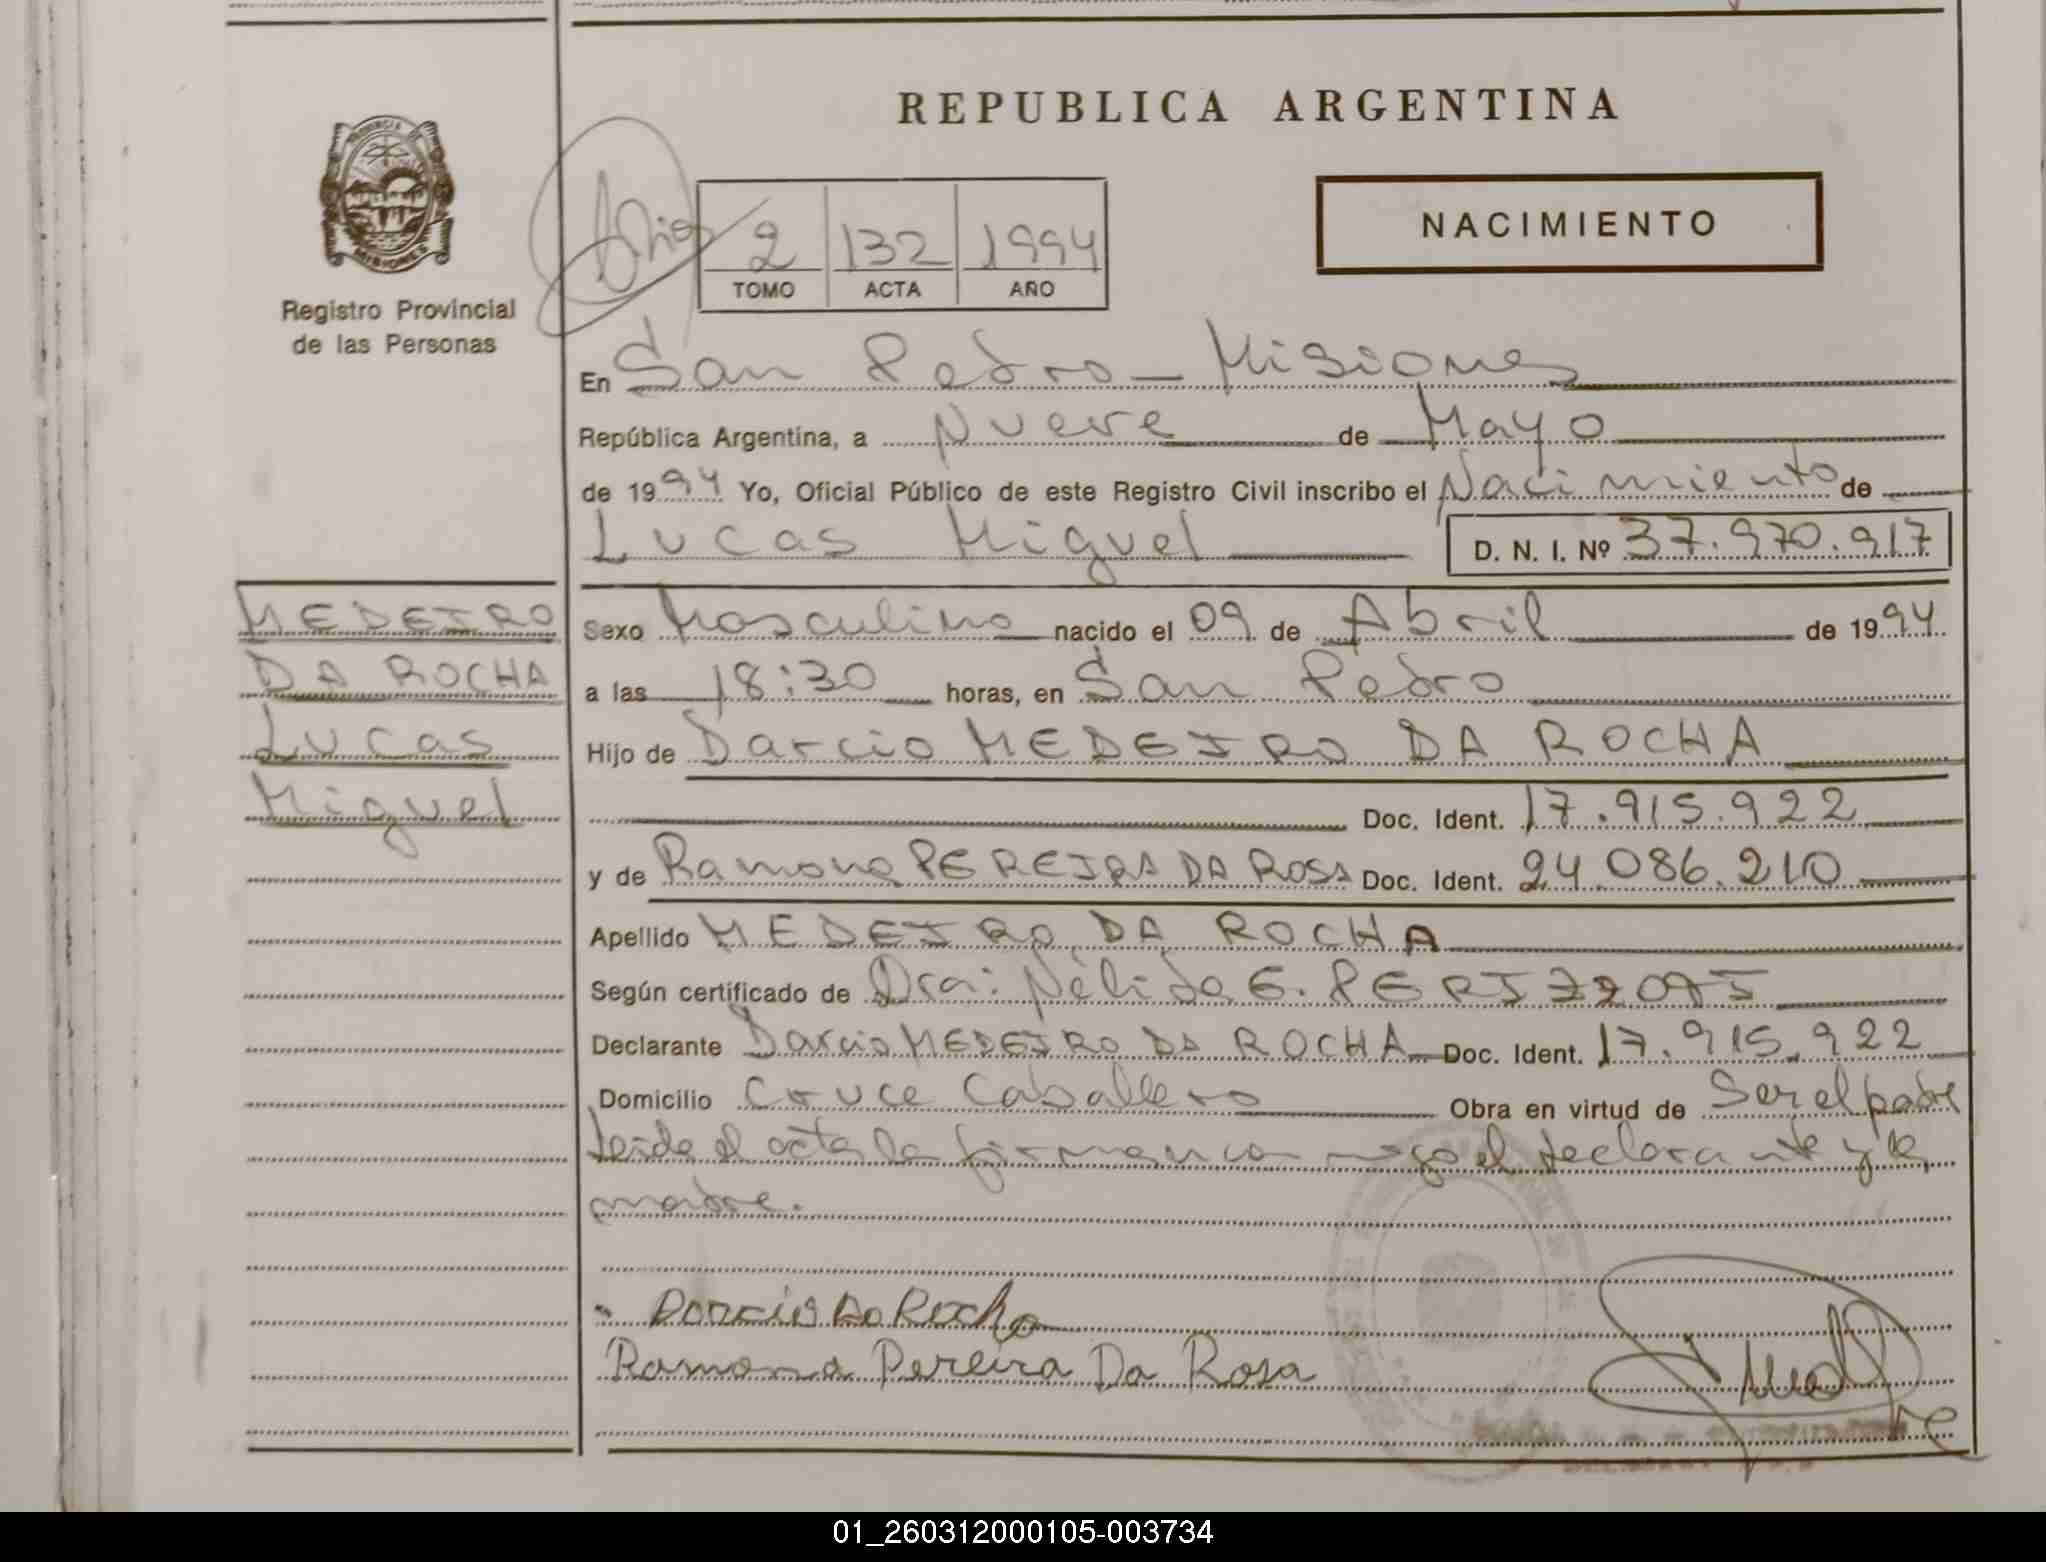 REPUBLICA ARGENTINA
PROVINCIA
MISIONES
NACIMIENTO
2 132 1994
TOMO ACTA AÑO
Registro Provincial
de las Personas
En San Pedro - Misiones
República Argentina, a Nueve de Mayo
de 1994 Yo, Oficial Público de este Registro Civil inscribo el Nacimiento de
Lucas Miguel D. N. I. Nº 37.970.917
MEDEIRO
DA ROCHA
Lucas
Miguel
Sexo Masculino nacido el 09 de Abril de 1994
a las 18:30 horas, en San Pedro
Hijo de Darcio MEDEIRO DA ROCHA
Doc. Ident. 17.915.922
y de Ramona PEREIRA DA ROSA Doc. Ident. 24.086.210
Apellido MEDEIRO DA ROCHA
Según certificado de Dra: Nélida E.
Declarante Darcio MEDEIRO DA ROCHA Doc. Ident. 17.915.922
Domicilio Cruce Caballero Obra en virtud de Ser el padre
leida el acta la firman con migo el declarante y la
madre.
Darcio Da Rocha
Ramona Pereira Da Rosa
01_260312000105-003734